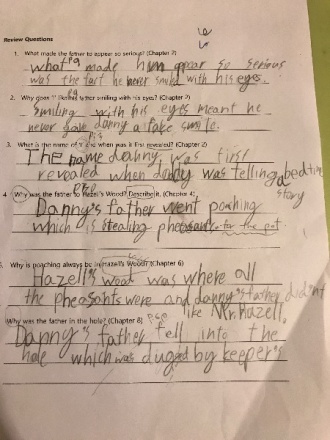 Review Questions
1. What made the father to appear so serious? (Chapter 2)
what made him appear so serious
was the fact he never smiled with his eyes.
2. Why does father smiling with his eyes? (Chapter 2)
smiling with his eyes meant he
never gave danny a fake smile.
3. What is the name of and when was it first revealed? (Chapter 2)
The name danny, was first
revealed when danny was telling a bedtime
story
4. Why was the father to Hazel's Wood? Describe it. (Chapter 4)
Danny's father went poaching
which is stealing pheasants for the pot.
5. Why is poaching always be in Hazell's Wood? (Chapter 6)
Hazell's wood was where all
the pheasants were and danny's father didn't
like Mr. Hazell.
Why was the father in the hole? (Chapter 8)
Danny's father fell into the
hole which was dugged by keeper's